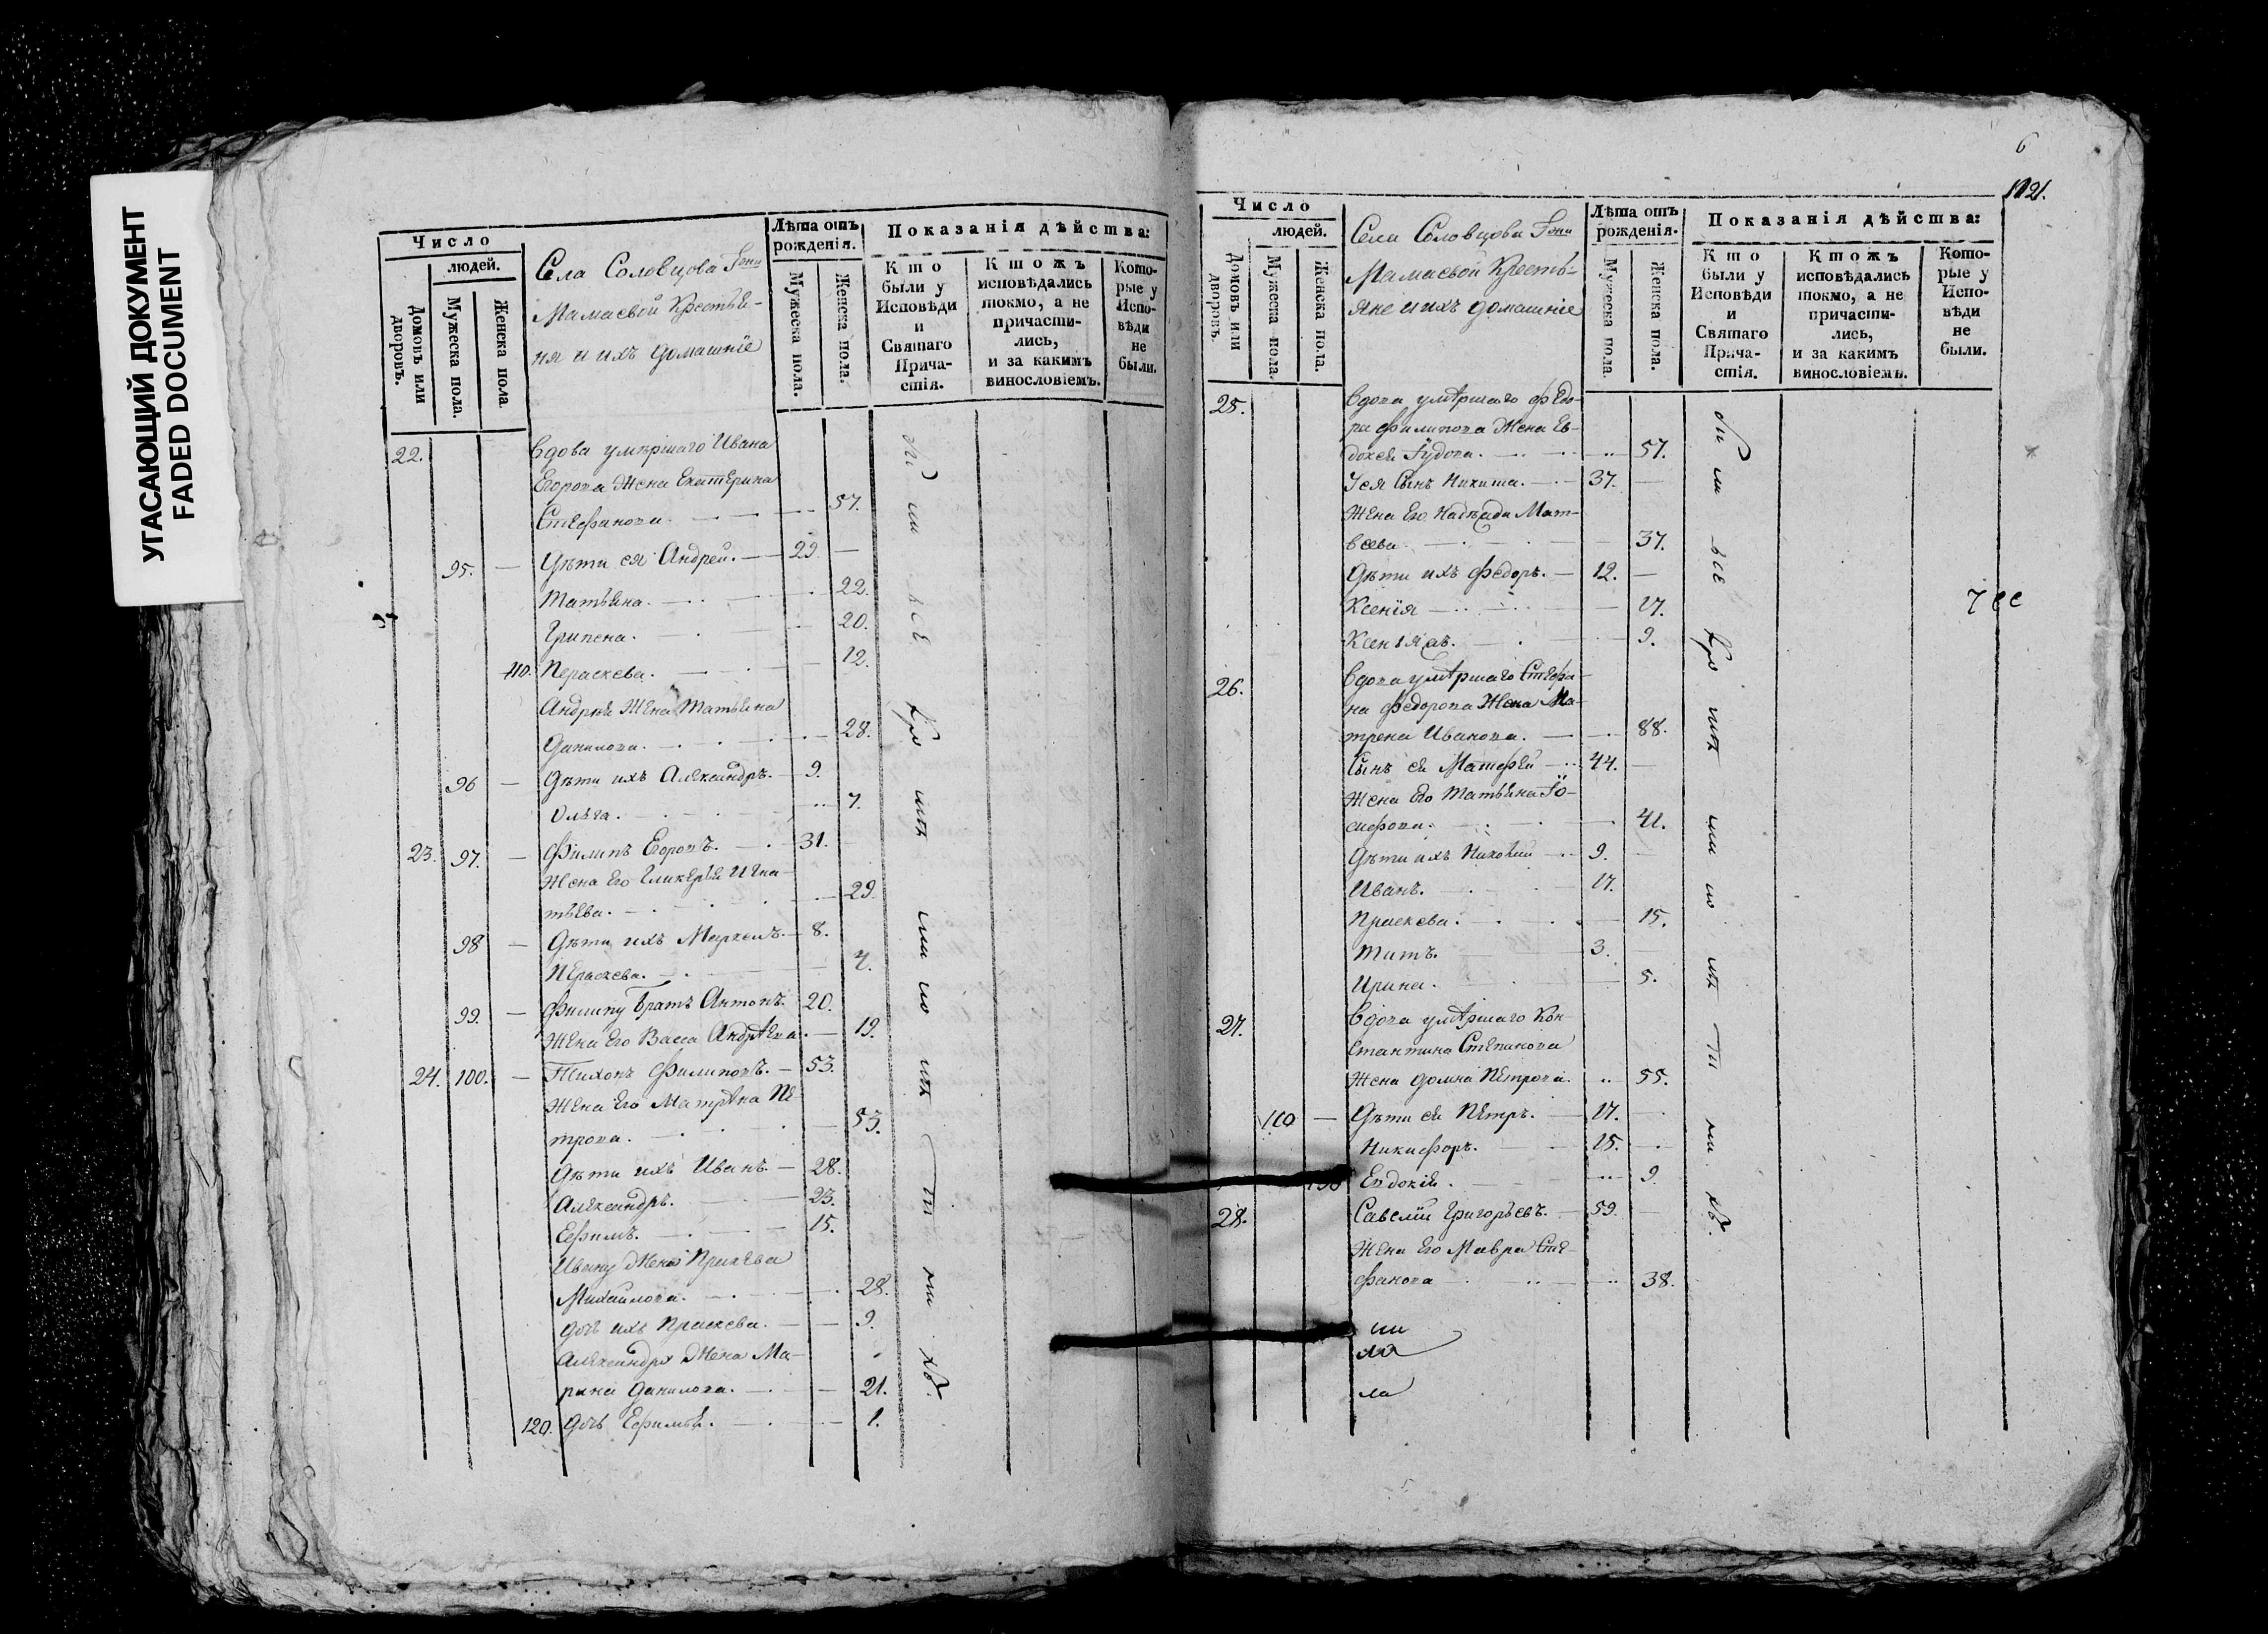 УГАСАЮЩИЙ ДОКУМЕНТ
FADED DOCUMENT
Число
людей.
Домовъ или дворовъ.
Мужеска пола.
Женска пола.
Села Соловцова Гжи
Мамаевой Крестья-
ня и ихъ домашніе
Лѣта отъ рожденія.
Мужеска пола.
Женска пола.
Показанія дѣйства:
Кто были у Исповѣди и Святаго Прича-стія.
Ктожъ исповѣдались токмо, а не причасти-лись, и за какимъ винословіемъ.
Кото-рые у Испо-вѣди не были.
22. Вдова умершаго Ивана
Егорова Жена Екатерина
Стефанова. 57.
95. — Дѣти ея Андрей. — 29. —
Татьяна. 22.
Грипена. 20.
110. Пераскева. 12.
Андрея Жена Татьяна
Данилова. 28.
96 — Дѣти ихъ Александръ. — 9.
Ольга. 7.
23. 97. — Филипъ Егоровъ. 31.
Жена Его Гликерья Игна-
тьева. 29.
98 — Дѣти ихъ Маркелъ. — 8.
Пераскева. 4.
99. — Филипу братъ Антонъ. 20.
Жена Его Васса Андрѣева. — 19.
24. 100. — Тихонъ Филиповъ. — 53.
Жена Его Матрена Пе-
трова. 53.
Дѣти ихъ Иванъ. — 28.
Александръ. 23.
Ефимъ. 15.
Ивану Жена Праскева
Михайлова. 28.
Дочь ихъ Праскева. 9.
Александра Жена Ма-
рина Данилова. 21.
120. Дочь Ефимья. 1.
6
1121.
Число
людей.
Домовъ или дворовъ.
Мужеска пола.
Женска пола.
Села Соловцова Гжи
Мамаевой Кресть-
яне и ихъ домашніе
Лѣта отъ рожденія.
Мужеска пола.
Женска пола.
Показанія дѣйства:
Кто были у Исповѣди и Святаго Прича-стія.
Ктожъ исповѣдались токмо, а не причасти-лись, и за какимъ винословіемъ.
Кото-рые у Испо-вѣди не были.
25. Вдова умершаго Федо-
ра Филипова Жена Ев-
докея 57.
Ея Сынъ Никита. 37. —
Жена Его Надежда Мат-
веева 37.
Дѣти ихъ Федоръ. — 12. —
Ксенія 17.
Ксенія 9.
26. Вдова умершаго Стефа-
на Федорова Жена Ма-
трена Иванова. 88.
Сынъ ея Матфей 44. —
Жена Его Татьяна Іо-
сифова. 41.
Дѣти ихъ Николай 9.
Иванъ. 17.
Праскева. 15.
Титъ. 3.
Ирина. 5.
27. Вдова умершаго Кон-
стантина Степанова
Жена Домна Петрова. 55.
110 — Дѣти ея Петръ. 17.
Никифоръ. 15.
Евдокія. 9.
28. Савелій Григорьевъ. — 59.
Жена Его Мавра Сте-
фанова 38.
ла